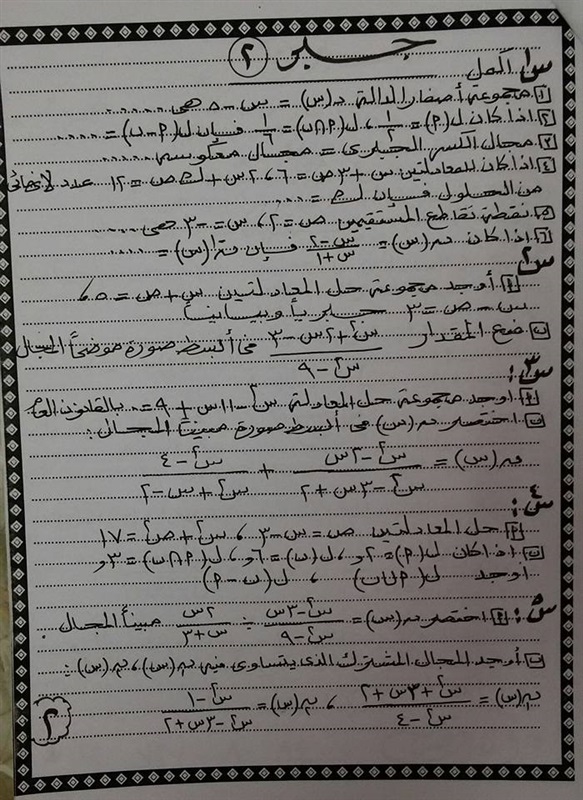 جبر (٢)
س١ أكمل
١ مجموعة أصفار الدالة د(س) = س - ٥ هى ......
٢ اذا كان ل(P) = ١/٢ ، ل(P∩ب) = ١/٦ فإن ل(P - ب) = ......
٣ مجال الكسر الجبرى = مجال معكوسه ......
٤ اذا كان للمعادلتين س + ٣ص = ٦ ، ٢س + ك ص = ١٢ عدد لانهائى
من الحلول فإن ك = ......
٥ نقطة تقاطع المستقيمين ص = ٢ ، س = -٣ هى ......
٦ اذا كان د(س) = (س-٢)/(س+١) فإن د⁻¹(س) = ......
س٢
P أوجد مجموعة حل المعادلتين س + ص = ٥ ،
س - ص = ٣ جبرياً وبيانياً
ب ضع المقدار (س² + ٢س - ٣)/(س² - ٩) فى أبسط صورة موضحاً المجال
س٣:
P اوجد مجموعة حل المعادلة س² - ١١س + ٩ = ٠ بالقانون العام
ب اختصر د(س) فى أبسط صورة مبيناً المجال:
د(س) = (س² - ٣س)/(س² - ٣س + ٢) + (س² - ٤)/(س² + س - ٢)
س٤:
P حل المعادلتين ص = س - ٣ ، س² + ص² = ١٧
ب اذا كان ل(P) = ٢و ، ل(ب) = ٦و ، ل(P∩ب) = ٣و
اوجد ل(P∪ب) ، ل(ب - P)
س٥: P اختصر د(س) = (س² - ٣س)/(س² - ٩) ÷ ٢س/(س+٣) مبيناً المجال.
ب أوجد المجال المشترك الذى يتساوى فيه د(س) ، د(س):
د(س) = (س² + ٣س + ٢)/(س² - ٤) ، د(س) = (س² - ١)/(س² - ٣س + ٢)
٢